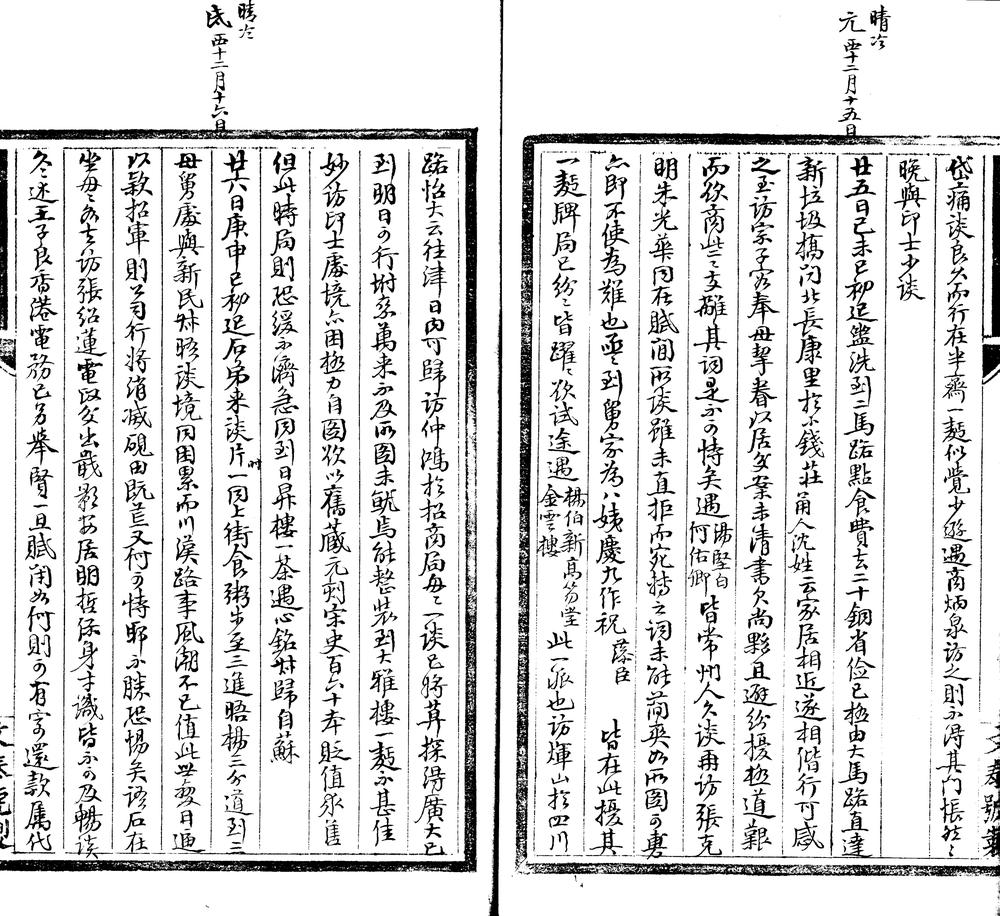 晴冷
元 西十二月十五日
岱痛談良久而行在半齋一麵似覺少遊遇商炳泉訪之則不得其門悵然々
晚與印士少談
廿五日己未巳初起盥洗到二馬路點食費去二十銅省儉已極由大馬路直達
新垃圾橋閘北長康里於小錢莊甬人沈姓云家居相近遂相偕行可感
之至訪宗子宕奉母挈眷以居多案未清書欠尚夥且遊紛擾極道艱
而欲商些々支離其詞是不可恃矣遇湯堅白何佑卿皆常州人久談再訪張克
明朱光華同在賦閒所談雖未直拒而宛轉之詞未能荷爽如所圖可專
亦即不便為難也亟々到舅家為八姨慶九作祝 蔭臣 皆在此擾其
一麵牌局已紛々皆躍々欲試途遇楊伯新高芴堂金雲樓此一派也訪煇山於四川
晴冷
氐 西十二月十六日
路怡大云往津日內可歸訪仲鴻於招商局每々一談已將葺探得廣大已
到明日可行附奉萬來不及所圖未觥焉能整裝到大雅樓一麵亦甚佳
妙訪印士處境亦困極力自圖欲以舊藏元刻宋史百六十本貶值求售
但此時局則恐緩不濟急同到日昇樓一茶遇心銘叔歸自蘇
廿六日庚申巳初起石弟來談片時一同上街食粥步至三進晤楊三分道到三
母舅處與新民叔晤談境同困累而川漢路事風潮不已值此世變日逼
以款招軍則公司行將消滅硯田既荒又何可恃耶不勝恐惕矣語石在
坐每々如是訪張紹蓮電政父出戢影安居明哲保身才識皆不可及暢談
久述王子良香港電務已另舉賢一旦賦閒如何則可有寄還款屬代